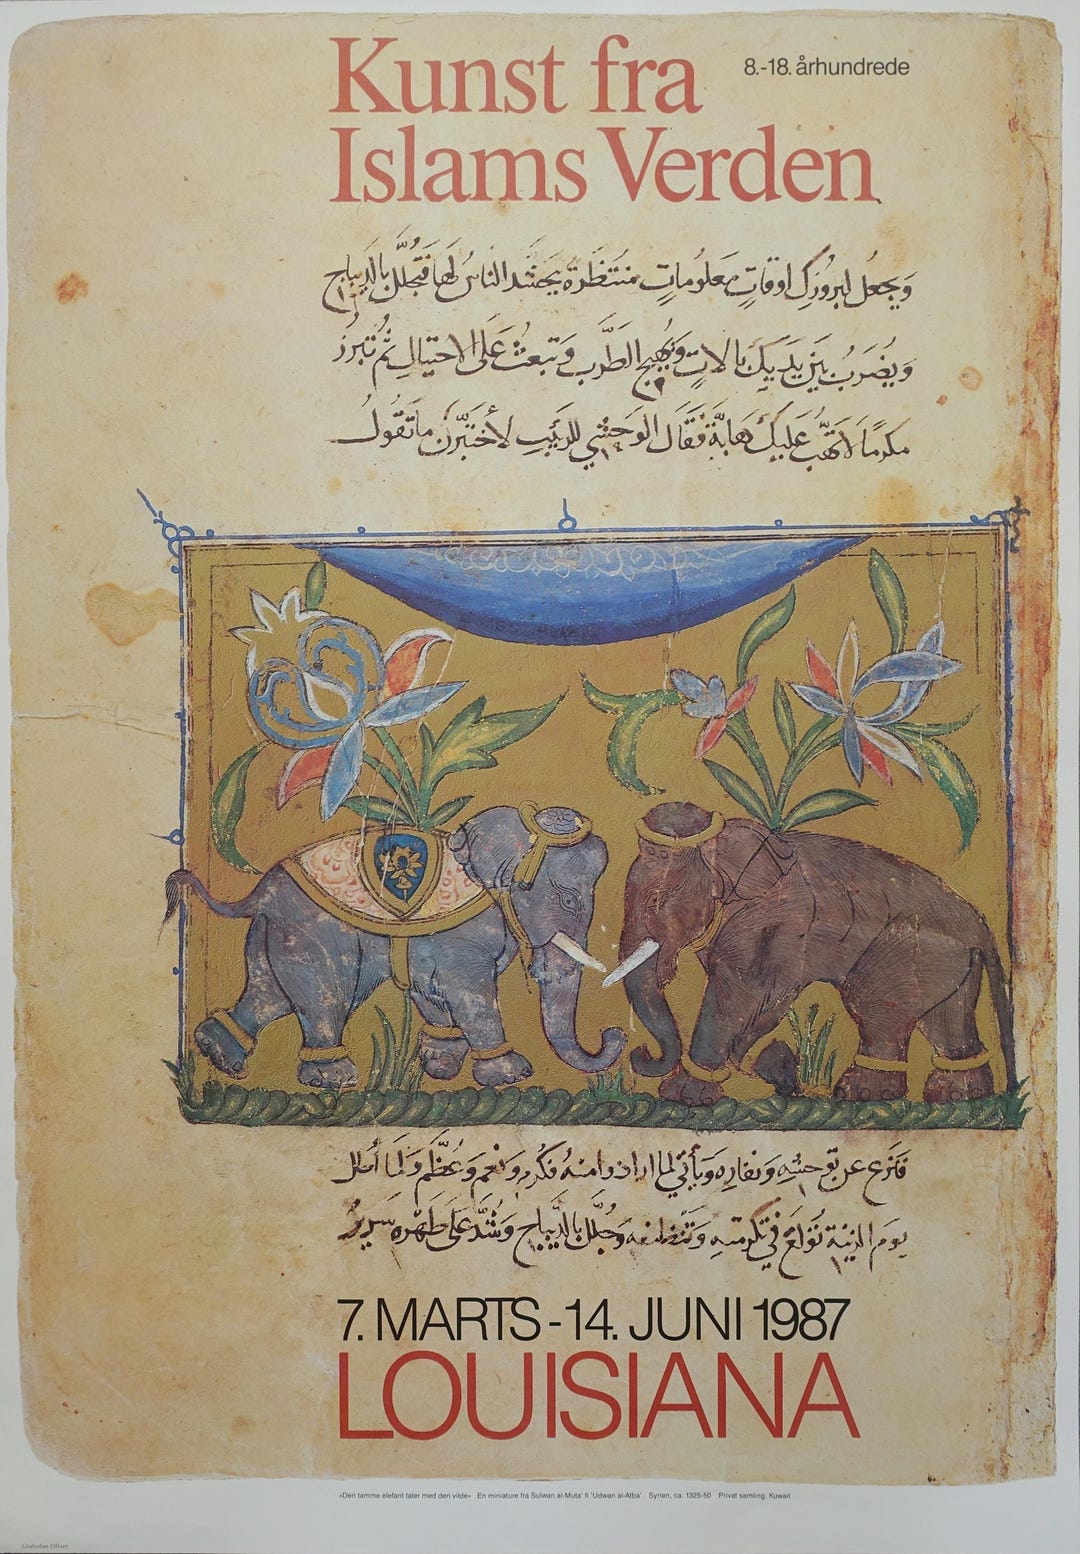 Kunst fra
8.-18. århundrede
Islams Verden
ويجعل لبروزك اوقات معلومات منتظرة يحشد الناس لها فتجلل بالديباج
ويضرب بين يديك بالات ويهيج الطرب وتبعث على الاختيال ثم تبرز
مكرما لا تهب عليك هابة فقال الوحشي للربيب لأختبرن ما تقول
فنزع عن توحشه ونفاره ويأتي لما اراد وامنه فكرم ونعم وعظم ولما أطل
يوم الزينة تولع في تكرمته وتنظيفه وجلل بالديباج وشد على ظهره سرير
7. MARTS - 14. JUNI 1987
LOUISIANA
»Den tamme elefant taler med den vilde« En miniature fra Sulwan al-Muta' fi 'Udwan al-Atba' Syrien, ca. 1325-50 Privat samling, Kuwait
Grafodan Offset